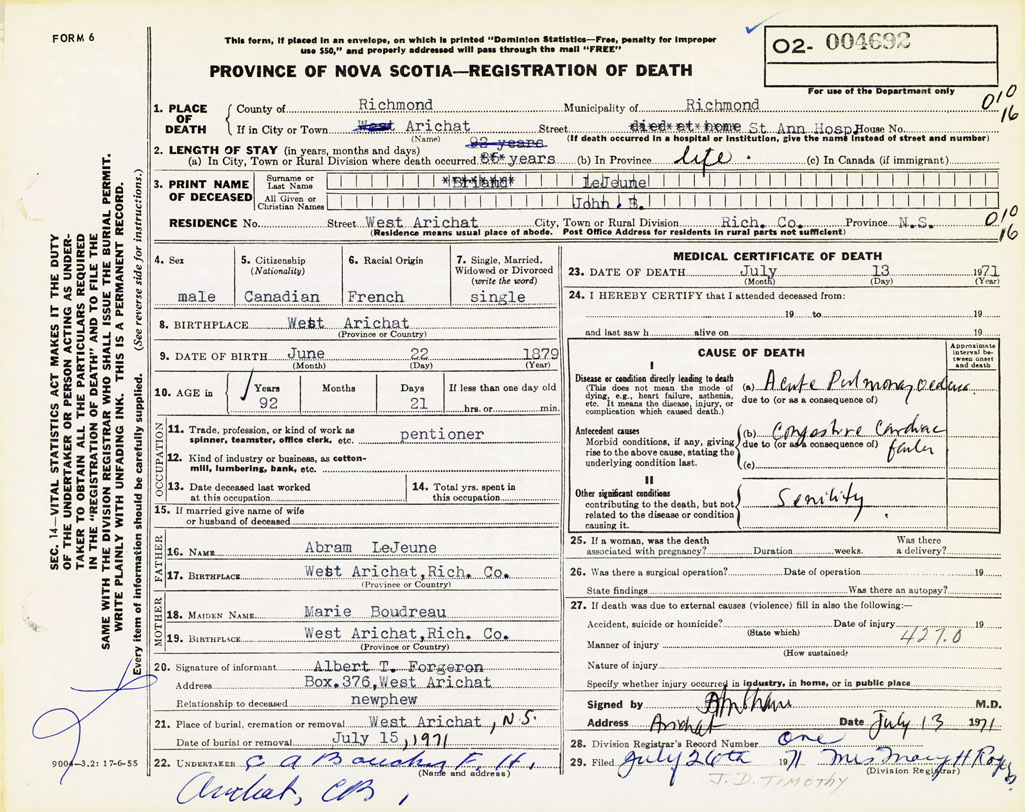 FORM 6
This form, if placed in an envelope, on which is printed "Dominion Statistics—Free, penalty for improper
use $50," and properly addressed will pass through the mail "FREE"
O2- 004692
PROVINCE OF NOVA SCOTIA—REGISTRATION OF DEATH
For use of the Department only
010
16
1. PLACE OF DEATH
County of Richmond Municipality of Richmond
If in City or Town West Arichat Street died at home St Ann Hosp. House No.
(Name) (If death occurred in a hospital or institution, give the name instead of street and number)
2. LENGTH OF STAY (in years, months and days) 92 years
(a) In City, Town or Rural Division where death occurred 85 years (b) In Province life. (c) In Canada (if immigrant)
3. PRINT NAME OF DECEASED
Surname or Last Name Briand LeJeune
All Given or Christian Names John E.
RESIDENCE No. Street West Arichat City, Town or Rural Division Rich. Co. Province N.S.
(Residence means usual place of abode. Post Office Address for residents in rural parts not sufficient)
010
16
SEC. 14—VITAL STATISTICS ACT MAKES IT THE DUTY
OF THE UNDERTAKER OR PERSON ACTING AS UNDER-
TAKER TO OBTAIN ALL THE PARTICULARS REQUIRED
IN THE "REGISTRATION OF DEATH" AND TO FILE THE
SAME WITH THE DIVISION REGISTRAR WHO SHALL ISSUE THE BURIAL PERMIT.
WRITE PLAINLY WITH UNFADING INK. THIS IS A PERMANENT RECORD.
Every item of information should be carefully supplied. (See reverse side for instructions.)
4. Sex
male
5. Citizenship
(Nationality)
Canadian
6. Racial Origin
French
7. Single, Married,
Widowed or Divorced
(write the word)
single
8. BIRTHPLACE West Arichat
(Province or Country)
9. DATE OF BIRTH June 22 1879
(Month) (Day) (Year)
10. AGE in
Years Months Days If less than one day old
92 21 hrs. or min.
OCCUPATION
11. Trade, profession, or kind of work as
spinner, teamster, office clerk, etc. pentioner
12. Kind of industry or business, as cotton-
mill, lumbering, bank, etc.
13. Date deceased last worked
at this occupation
14. Total yrs. spent in
this occupation
15. If married give name of wife
or husband of deceased
FATHER
16. NAME Abram LeJeune
17. BIRTHPLACE West Arichat,Rich. Co.
(Province or Country)
MOTHER
18. MAIDEN NAME Marie Boudreau
19. BIRTHPLACE West Arichat,Rich. Co.
(Province or Country)
20. Signature of informant Albert T. Forgeron
Address Box.376,West Arichat
Relationship to deceased newphew
21. Place of burial, cremation or removal West Arichat, N.S.
Date of burial or removal July 15, 1971
22. UNDERTAKER C A Boudreau F. H,
(Name and address)
Arichat, CB,
9004—3.2: 17-6-55
MEDICAL CERTIFICATE OF DEATH
23. DATE OF DEATH July 13 1971
(Month) (Day) (Year)
24. I HEREBY CERTIFY that I attended deceased from:
19 to 19
and last saw h alive on 19
CAUSE OF DEATH
Approximate
interval be-
tween onset
and death
I
Disease or condition directly leading to death
(This does not mean the mode of
dying, e.g., heart failure, asthenia,
etc. It means the disease, injury, or
complication which caused death.)
(a) Acute Pulmonary oedema
due to (or as a consequence of)
Antecedent causes
Morbid conditions, if any, giving
rise to the above cause, stating the
underlying condition last.
(b) Congestive Cardiac
due to (or as a consequence of) failer
(c)
II
Other significant conditions
contributing to the death, but not
related to the disease or condition
causing it.
Senility
25. If a woman, was the death
associated with pregnancy? Duration weeks. Was there
a delivery?
26. Was there a surgical operation? Date of operation 19
State findings Was there an autopsy?
27. If death was due to external causes (violence) fill in also the following:—
Accident, suicide or homicide? Date of injury 19
(State which)
427.0
Manner of injury
(How sustained)
Nature of injury
Specify whether injury occurred in industry, in home, or in public place
Signed by M.D.
Address Arichat Date July 13 1971
28. Division Registrar's Record Number one
29. Filed July 26th 1971 Mrs Mary H
(Division Registrar)
J.D. TIMOTHY